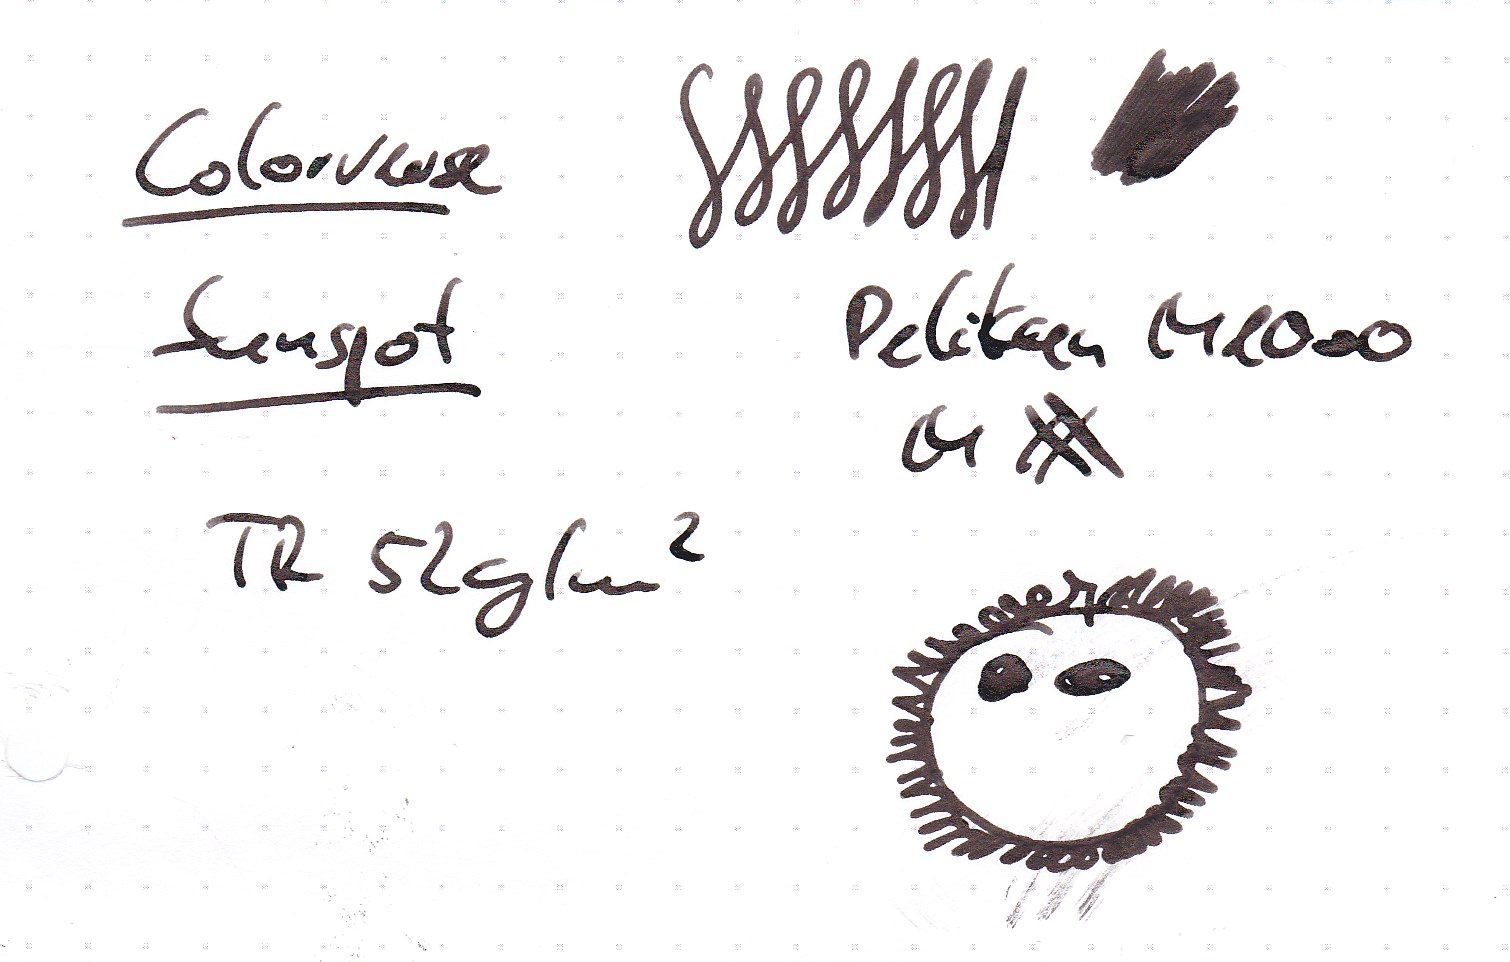 Colorverse
Sunspot
Pelikan M1000
M
TR 52g/m²